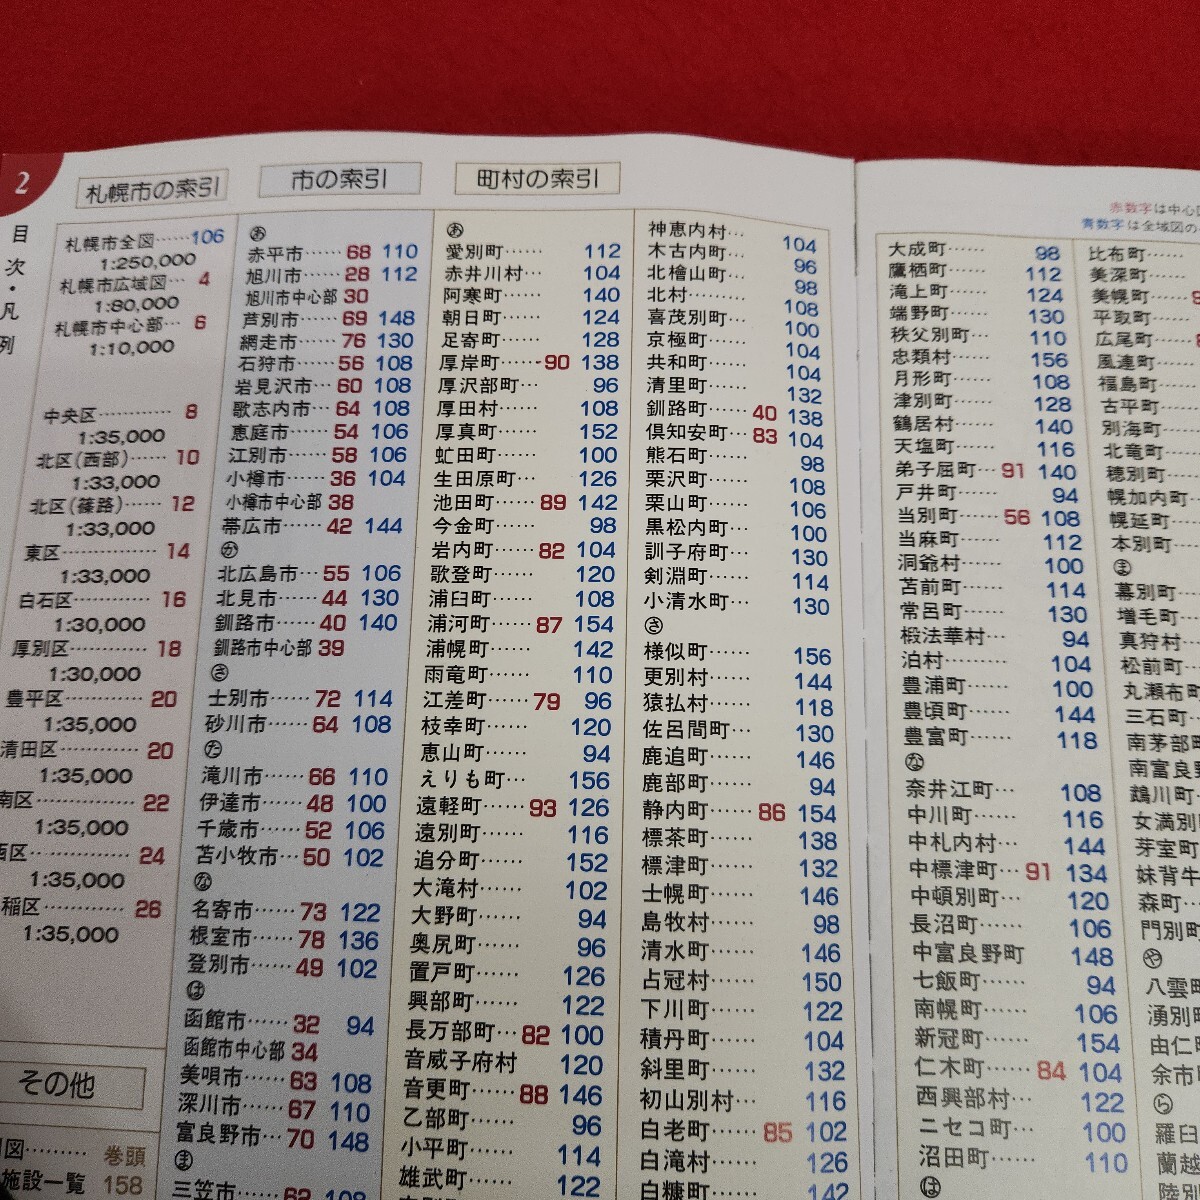 2
目次・凡例
札幌市の索引
札幌市全図……106
1:250,000
札幌市広域図… 4
1:80,000
札幌市中心部… 6
1:10,000
中央区………… 8
1:35,000
北区(西部)…… 10
1:33,000
北区(篠路)…… 12
1:33,000
東区………… 14
1:33,000
白石区………… 16
1:30,000
厚別区………… 18
1:30,000
豊平区………… 20
1:35,000
清田区………… 20
1:35,000
南区………… 22
1:35,000
西区………… 24
1:35,000
稲区………… 26
1:35,000
その他
図……… 巻頭
施設一覧 158
市の索引
あ
赤平市…… 68 110
旭川市…… 28 112
旭川市中心部 30
芦別市…… 69 148
網走市…… 76 130
石狩市…… 56 108
岩見沢市… 60 108
歌志内市… 64 108
恵庭市…… 54 106
江別市…… 58 106
小樽市…… 36 104
小樽市中心部 38
帯広市…… 42 144
か
北広島市… 55 106
北見市…… 44 130
釧路市…… 40 140
釧路市中心部 39
さ
士別市…… 72 114
砂川市…… 64 108
た
滝川市…… 66 110
伊達市…… 48 100
千歳市…… 52 106
苫小牧市… 50 102
な
名寄市…… 73 122
根室市…… 78 136
登別市…… 49 102
は
函館市…… 32 94
函館市中心部 34
美唄市…… 63 108
深川市…… 67 110
富良野市… 70 148
ま
三笠市…… 62 108
町村の索引
あ
愛別町…… 112
赤井川村… 104
阿寒町…… 140
朝日町…… 124
足寄町…… 128
厚岸町…… 90 138
厚沢部町… 96
厚田村…… 108
厚真町…… 152
虻田町…… 100
生田原町… 126
池田町…… 89 142
今金町…… 98
岩内町…… 82 104
歌登町…… 120
浦臼町…… 108
浦河町…… 87 154
浦幌町…… 142
雨竜町…… 110
江差町…… 79 96
枝幸町…… 120
恵山町…… 94
えりも町… 156
遠軽町…… 93 126
遠別町…… 116
追分町…… 152
大滝村…… 102
大野町…… 94
奥尻町…… 96
置戸町…… 126
興部町…… 122
長万部町… 82 100
音威子府村 120
音更町…… 88 146
乙部町…… 96
小平町…… 114
雄武町…… 122
神恵内村… 104
木古内町… 96
北檜山町… 98
北村……… 108
喜茂別町… 100
京極町…… 104
共和町…… 104
清里町…… 132
釧路町…… 40 138
倶知安町… 83 104
熊石町…… 98
栗沢町…… 108
栗山町…… 106
黒松内町… 100
訓子府町… 130
剣淵町…… 114
小清水町… 130
さ
様似町…… 156
更別村…… 144
猿払村…… 118
佐呂間町… 130
鹿追町…… 146
鹿部町…… 94
静内町…… 86 154
標茶町…… 138
標津町…… 132
士幌町…… 146
島牧村…… 98
清水町…… 146
占冠村…… 150
下川町…… 122
積丹町…… 104
斜里町…… 132
初山別村… 116
白老町…… 85 102
白滝村…… 126
白糠町…… 142
赤数字は中心
青数字は全域図の
大成町…… 98
鷹栖町…… 112
滝上町…… 124
端野町…… 130
秩父別町… 110
忠類村…… 156
月形町…… 108
津別町…… 128
鶴居村…… 140
天塩町…… 116
弟子屈町… 91 140
戸井町…… 94
当別町…… 56 108
当麻町…… 112
洞爺村…… 100
苫前町…… 114
常呂町…… 130
椴法華村… 94
泊村……… 104
豊浦町…… 100
豊頃町…… 144
豊富町…… 118
な
奈井江町… 108
中川町…… 116
中札内村… 144
中標津町… 91 134
中頓別町… 120
長沼町…… 106
中富良野町 148
七飯町…… 94
南幌町…… 106
新冠町…… 154
仁木町…… 84 104
西興部村… 122
ニセコ町… 100
沼田町…… 110
は
比布町……
美深町……
美幌町……
平取町……
広尾町……
風連町……
福島町……
古平町……
別海町……
北竜町……
穂別町……
幌加内町…
幌延町……
本別町……
ま
幕別町……
増毛町……
真狩村……
松前町……
丸瀬布町
三石町……
南茅部町
南富良野
鵡川町……
女満別町
芽室町……
妹背牛
森町……
門別町
や
八雲町
湧別町
由仁町
余市町
ら
羅臼
蘭越
陸別